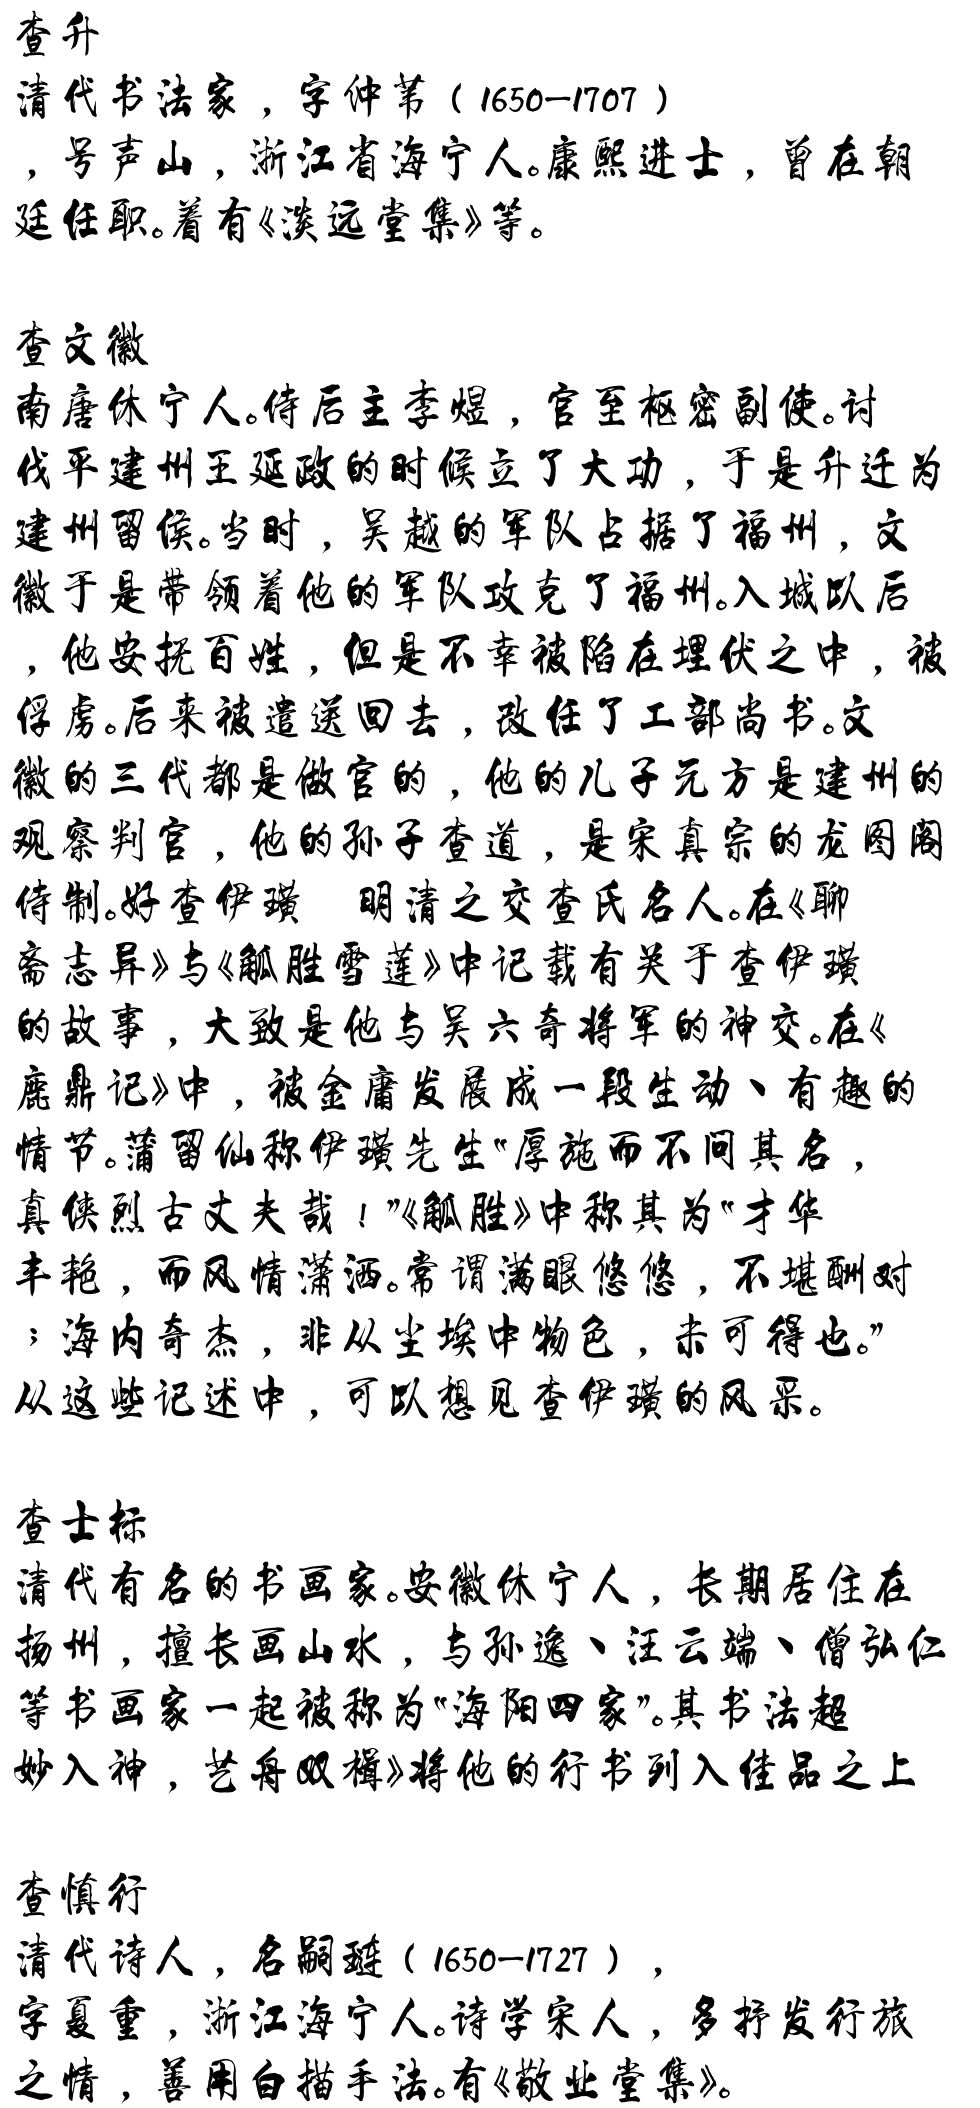 查升
清代书法家，字仲苇（1650—1707）
，号声山，浙江省海宁人。康熙进士，曾在朝
廷任职。着有《淡远堂集》等。
查文徽
南唐休宁人。侍后主李煜，官至枢密副使。讨
伐平建州王延政的时候立了大功，于是升迁为
建州留侯。当时，吴越的军队占据了福州，文
徽于是带领着他的军队攻克了福州。入城以后
，他安抚百姓，但是不幸被陷在埋伏之中，被
俘虏。后来被遣送回去，改任了工部尚书。文
徽的三代都是做官的，他的儿子元方是建州的
观察判官，他的孙子查道，是宋真宗的龙图阁
侍制。好查伊璜　明清之交查氏名人。在《聊
斋志异》与《觚胜雪莲》中记载有关于查伊璜
的故事，大致是他与吴六奇将军的神交。在《
鹿鼎记》中，被金庸发展成一段生动、有趣的
情节。蒲留仙称伊璜先生“厚施而不问其名，
真侠烈古丈夫哉！”《觚胜》中称其为“才华
丰艳，而风情潇洒。常谓满眼悠悠，不堪酬对
；海内奇杰，非从尘埃中物色，未可得也。”
从这些记述中，可以想见查伊璜的风采。
查士标
清代有名的书画家。安徽休宁人，长期居住在
扬州，擅长画山水，与孙逸、汪云端、僧弘仁
等书画家一起被称为“海阳四家”。其书法超
妙入神，艺舟双楫》将他的行书列入佳品之上
查慎行
清代诗人，名嗣琏（1650—1727），
字夏重，浙江海宁人。诗学宋人，多抒发行旅
之情，善用白描手法。有《敬业堂集》。